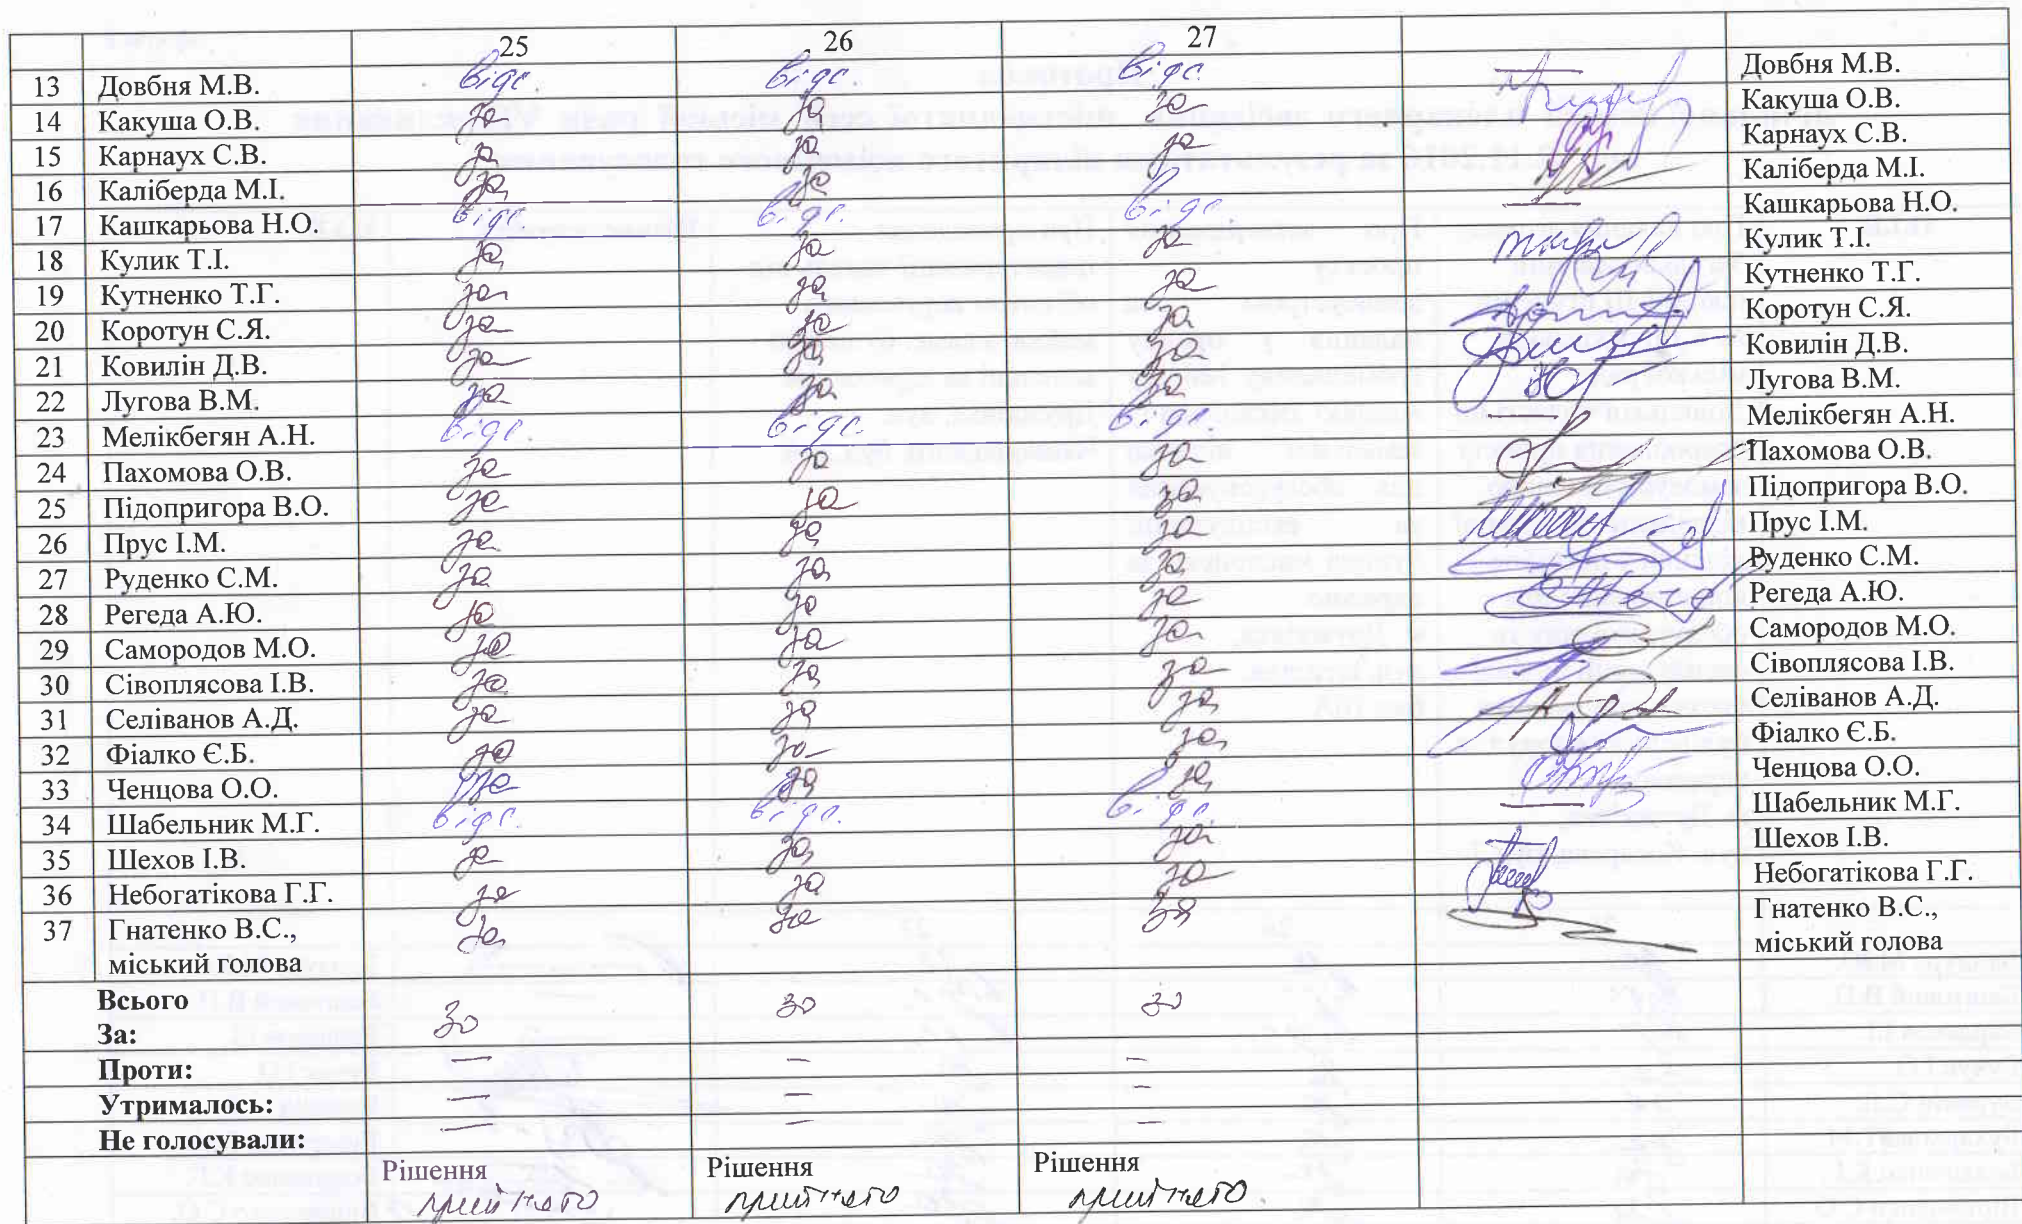 25 26 27
13 Довбня М.В. відс. відс. відс. Довбня М.В.
14 Какуша О.В. за за за Какуша О.В.
15 Карнаух С.В. за за за Карнаух С.В.
16 Каліберда М.І. за за Каліберда М.І.
17 Кашкарьова Н.О. відс. відс. відс. Кашкарьова Н.О.
18 Кулик Т.І. за за за Кулик Т.І.
19 Кутненко Т.Г. за за за Кутненко Т.Г.
20 Коротун С.Я. за за за Коротун С.Я.
21 Ковилін Д.В. за за за Ковилін Д.В.
22 Лугова В.М. за за за Лугова В.М.
23 Мелікбегян А.Н. відс. відс. відс. Мелікбегян А.Н.
24 Пахомова О.В. за за за Пахомова О.В.
25 Підопригора В.О. за за за Підопригора В.О.
26 Прус І.М. за за за Прус І.М.
27 Руденко С.М. за за за Руденко С.М.
28 Регеда А.Ю. за за за Регеда А.Ю.
29 Самородов М.О. за за за Самородов М.О.
30 Сівоплясова І.В. за за за Сівоплясова І.В.
31 Селіванов А.Д. за за за Селіванов А.Д.
32 Фіалко Є.Б. за за за Фіалко Є.Б.
33 Ченцова О.О. за за за Ченцова О.О.
34 Шабельник М.Г. відс. відс. відс. Шабельник М.Г.
35 Шехов І.В. за за за Шехов І.В.
36 Небогатікова Г.Г. за за за Небогатікова Г.Г.
37 Гнатенко В.С., за за за Гнатенко В.С.,
міський голова міський голова
Всього
За: 30 30 30
Проти: — — —
Утрималось: — — —
Не голосували: — — —
Рішення Рішення Рішення
прийнято прийнято прийнято.